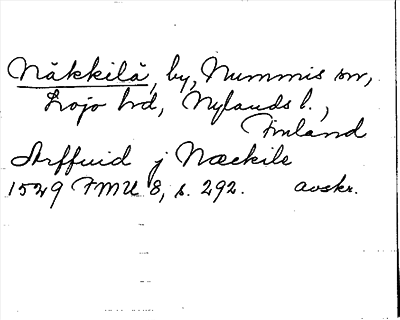 Näkkilä, by, Nummis sn,
Lojo hd, Nylands l.,
Finland
Arffuid j Næckile
1529 FMU 8, s. 292. avskr.